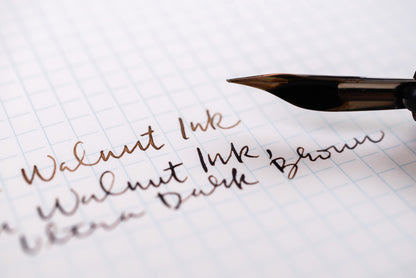 Walnut Ink
Walnut Ink
Ultra Dark Brown